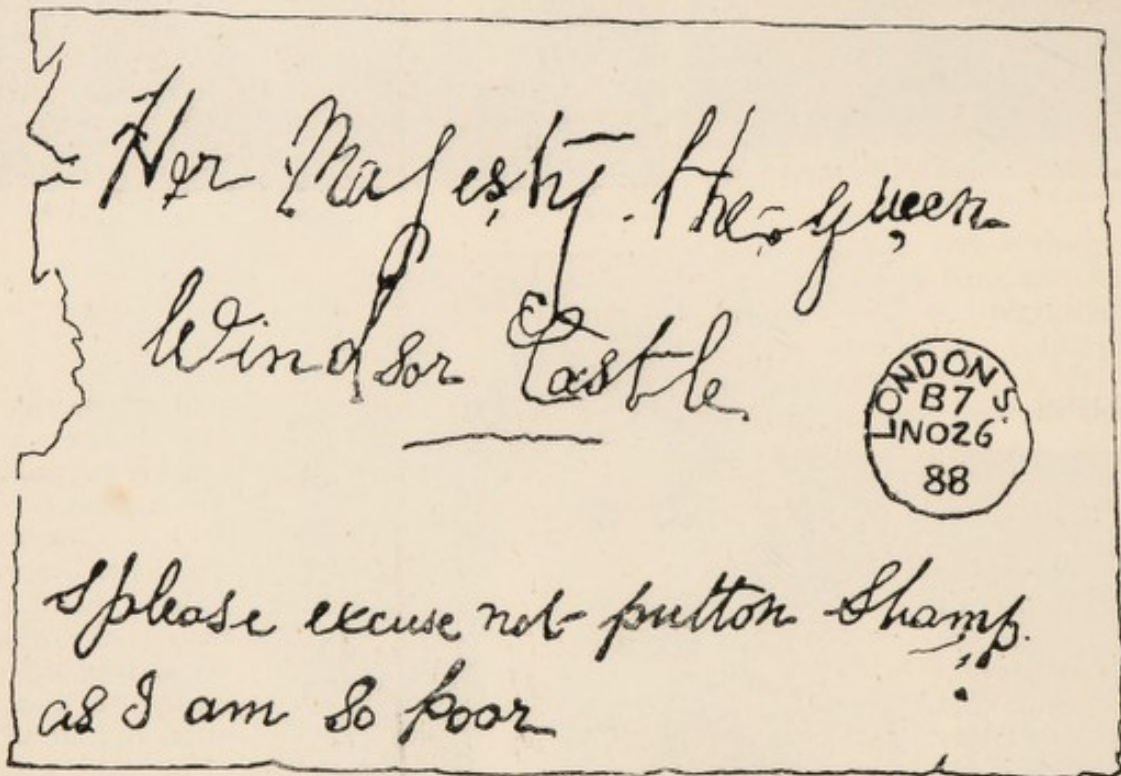 Her Majesty the queen
Windsor Castle
LONDON S.
B7
NO26
88
please excuse not putton Stamp
as I am so poor